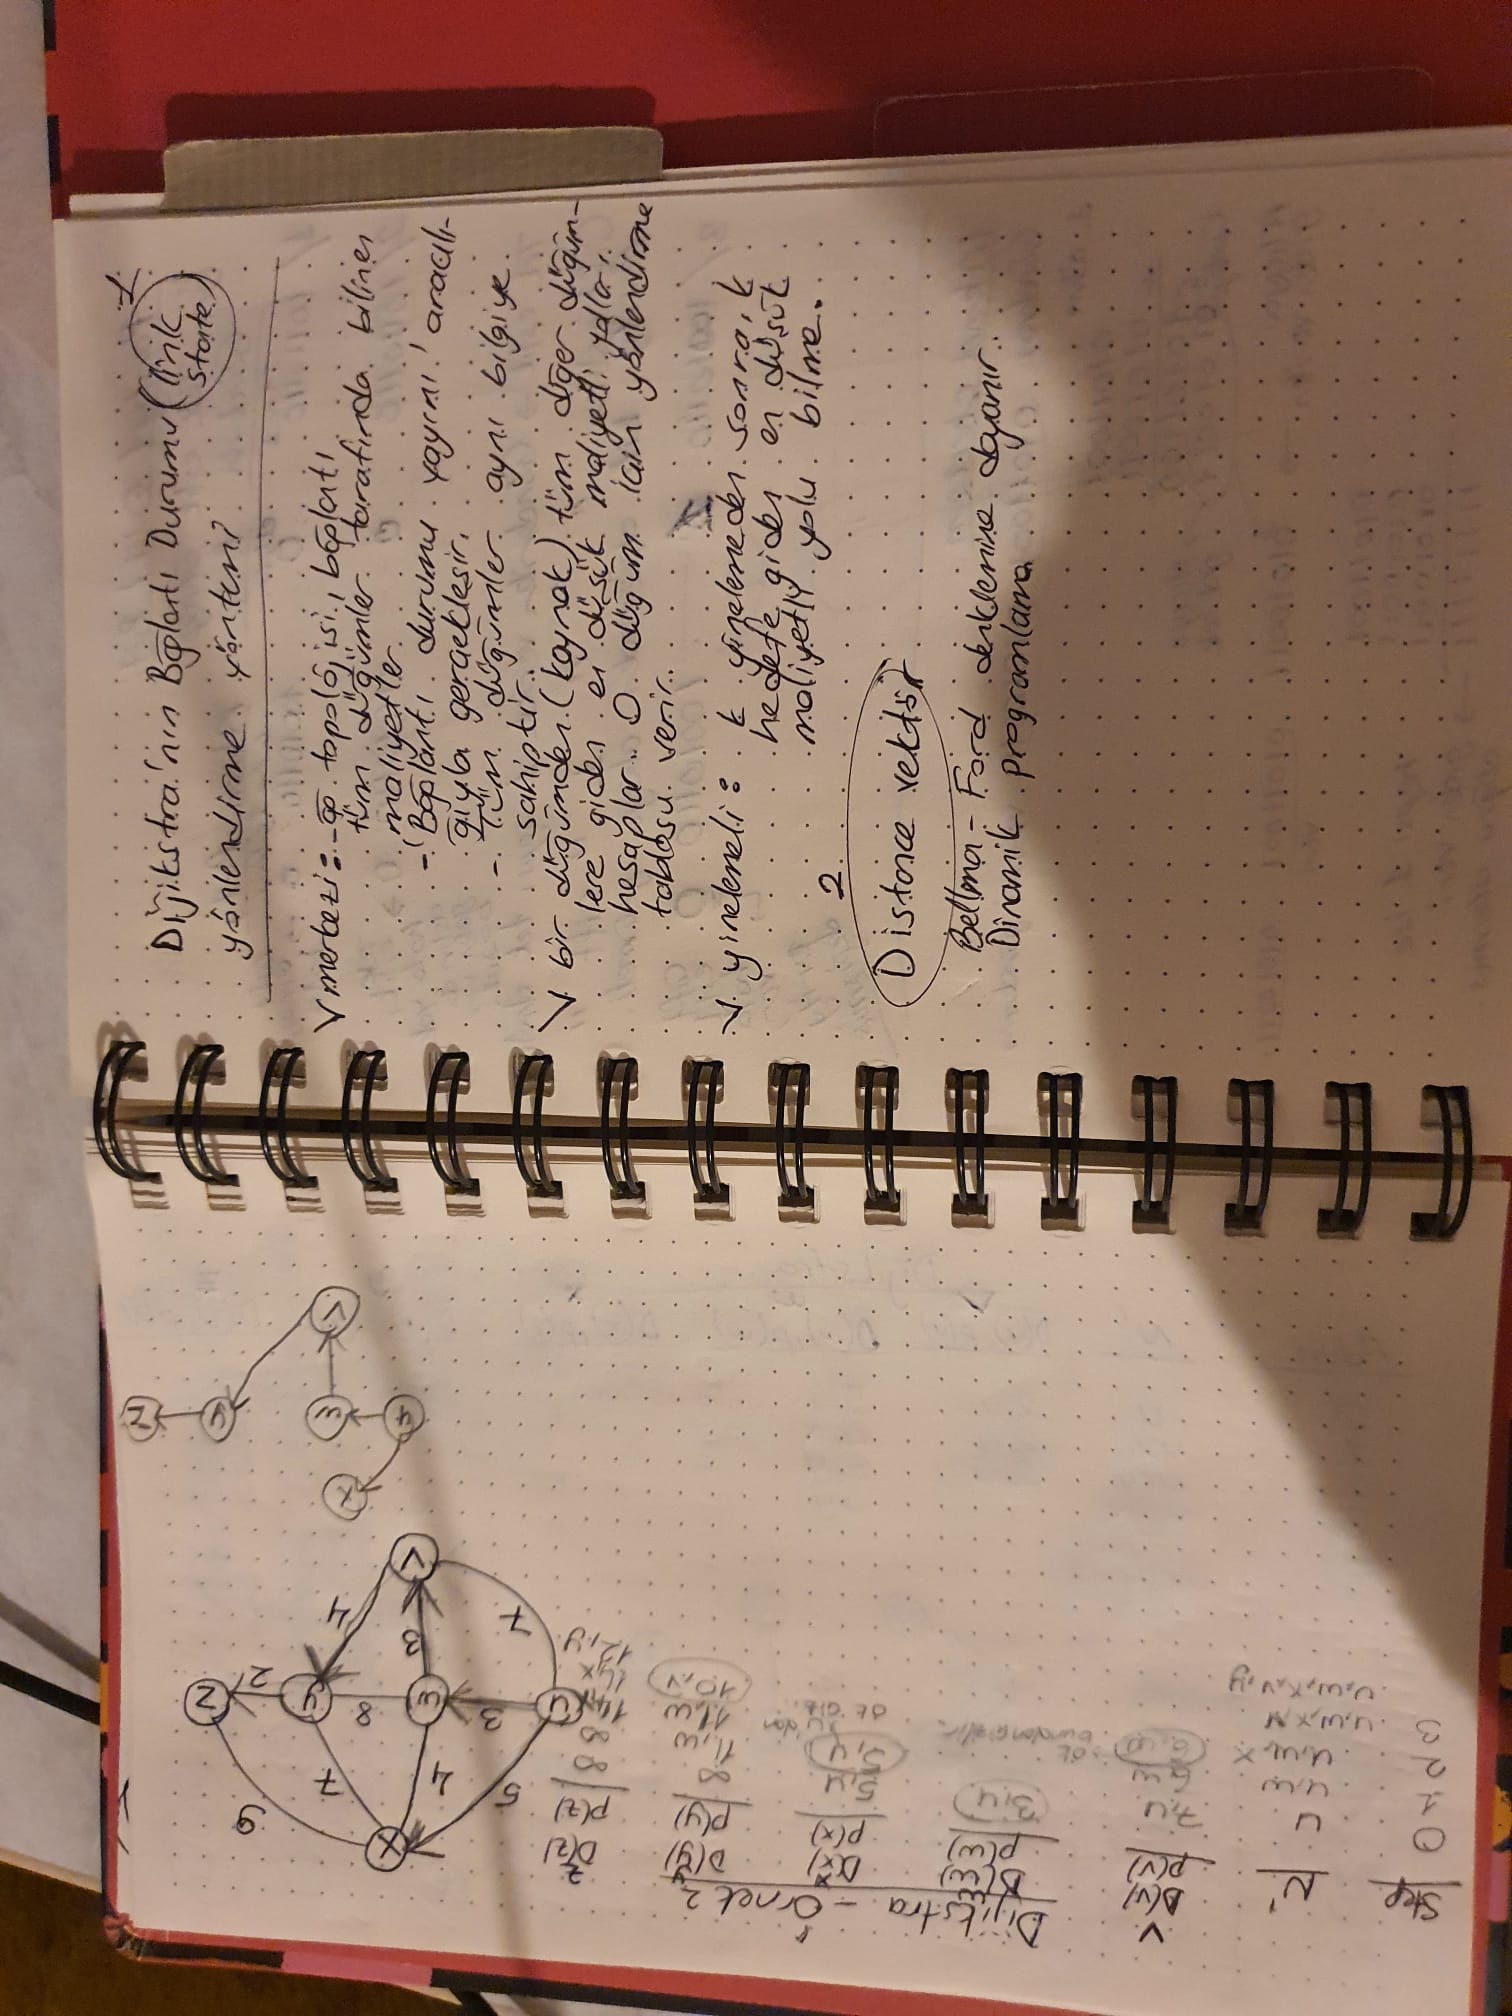 Dijikstra - Örnek 2
Step N' D(v) D(w) D(x) D(y) D(z)
p(v) p(w) p(x) p(y) p(z)
0 u 7,u 3,u 5,u ∞ ∞
1 u,w 6,w 5,u 11,w ∞
2 u,w,x 6,w 11,w 14,x
3 u,w,x,v 10,v 14,x
u,w,x,v,y 12,y
x 9 z
7
5 4 w 8 y 2
u 3 3 4
7 v
x
u w y z
v
1
Dijikstra'nın Bağlantı Durumu (link
state)
yönlendirme yöntemi
V merkezi: - ağ topolojisi, bağlantı
tüm düğümler tarafında bilinen
maliyetler
- 'Bağlantı durumu yayını' aracılı-
ğıyla gerçekleşir.
- Tüm düğümler aynı bilgiye
sahiptir.
V bir düğümden (kaynak) tüm diğer düğüm-
lere giden en düşük maliyetli yolları
hesaplar. O düğüm için yönlendirme
tablosu verir.
V yinelemeli: k yinelemeden sonra, k
hedefe giden en düşük
maliyetli yolu bilme.
2
Distance vektör
Bellma - Ford denklemine dayanır.
Dinamik programlama